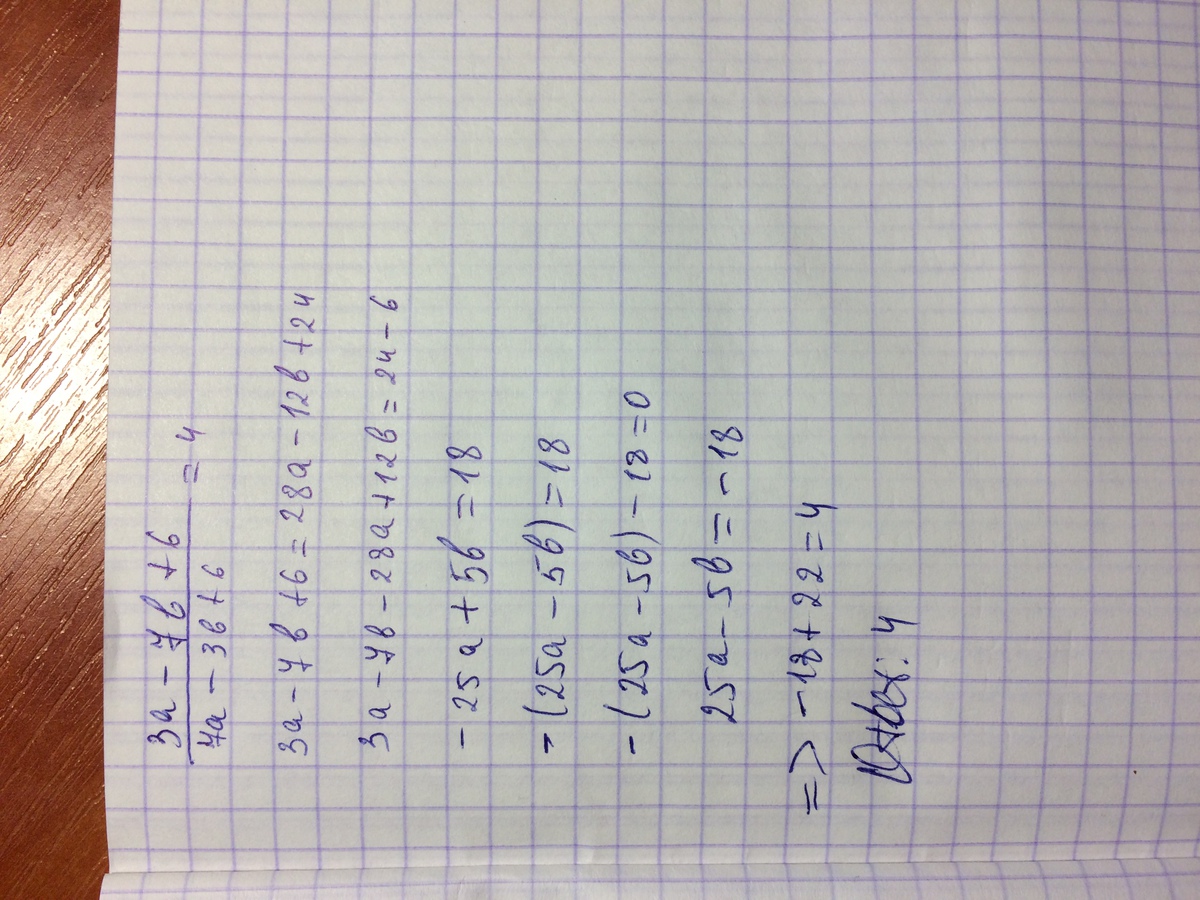 3a - 7b + 6
7a - 3b + 6 = 4
3a - 7b + 6 = 28a - 12b + 24
3a - 7b - 28a + 12b = 24 - 6
- 25a + 5b = 18
- (25a - 5b) = 18
- (25a - 5b) - 18 = 0
25a - 5b = - 18
=> - 18 + 22 = 4
Ответ: 4